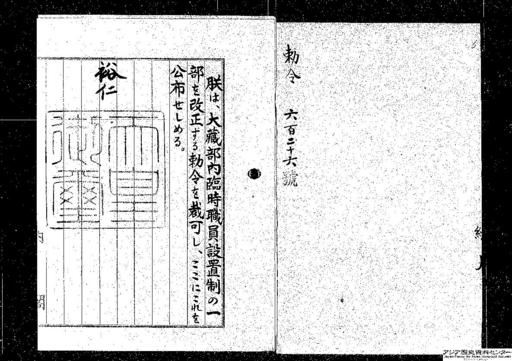 勅令 六百二十六號
朕は、大藏部内臨時職員設置制の一
部を改正する勅令を裁可し、ここにこれを
公布せしめる。
裕仁
天皇
御璽
内閣
アジア歴史資料センター